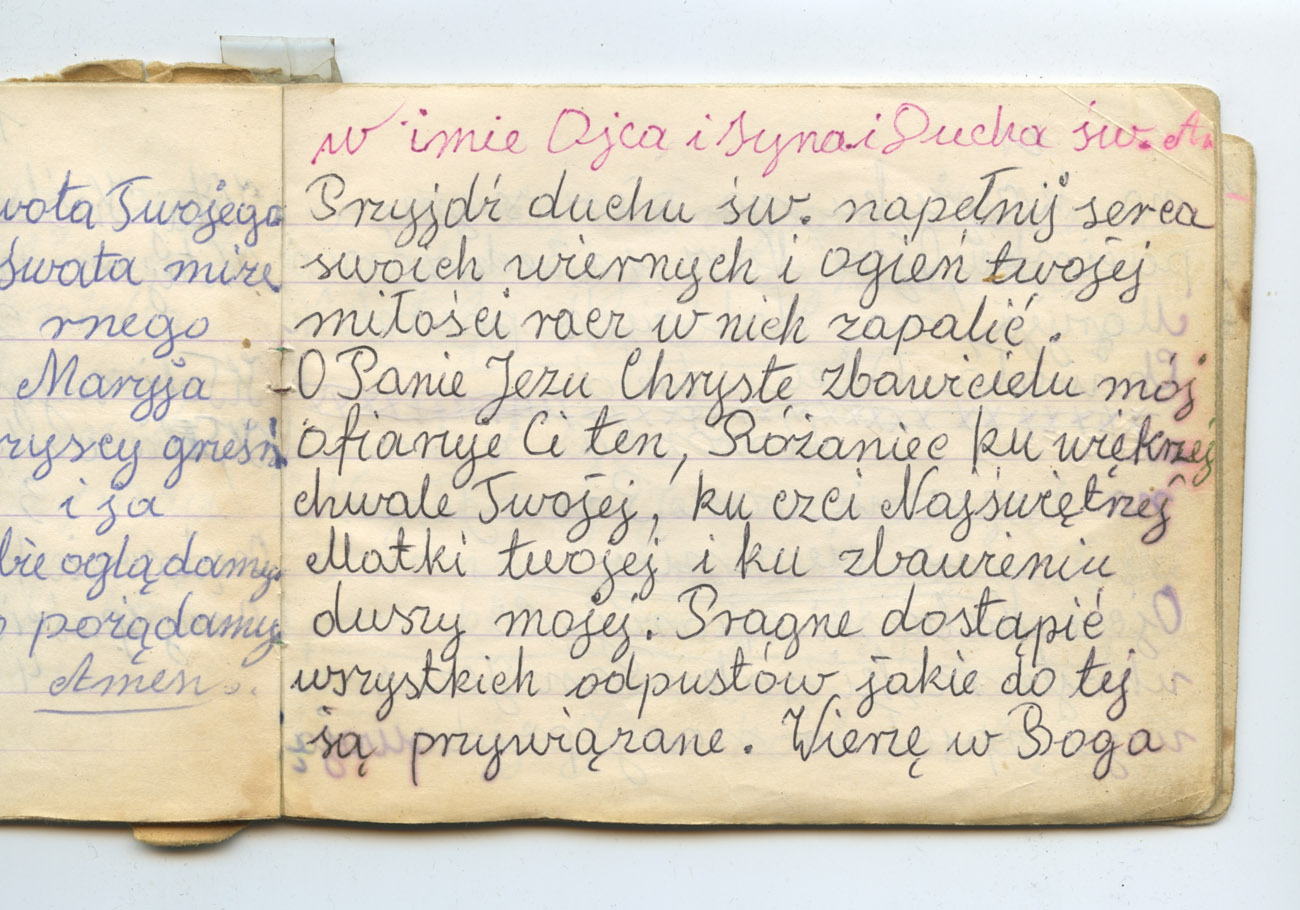 wota Twojego
świata mize
rnego
Maryja
ryscy grzeszn
i ja
bie oglądamy.
pożądamy.
Amen.
w imie Ojca i Syna i Ducha św. A.
Przyjdź duchu św. napełnij serca
swoich wiernych i ogień twojej
miłości racz w nich zapalić.
O Panie Jezu Chryste zbawicielu mój
ofiaruje Ci ten, Różaniec ku większej
chwale Twojej, ku czci Najświętszej
Matki twojej i ku zbawieniu
duszy mojej. Pragne dostąpić
wszystkich odpustów jakie do tej
są przywiązane. Wierzę w Boga